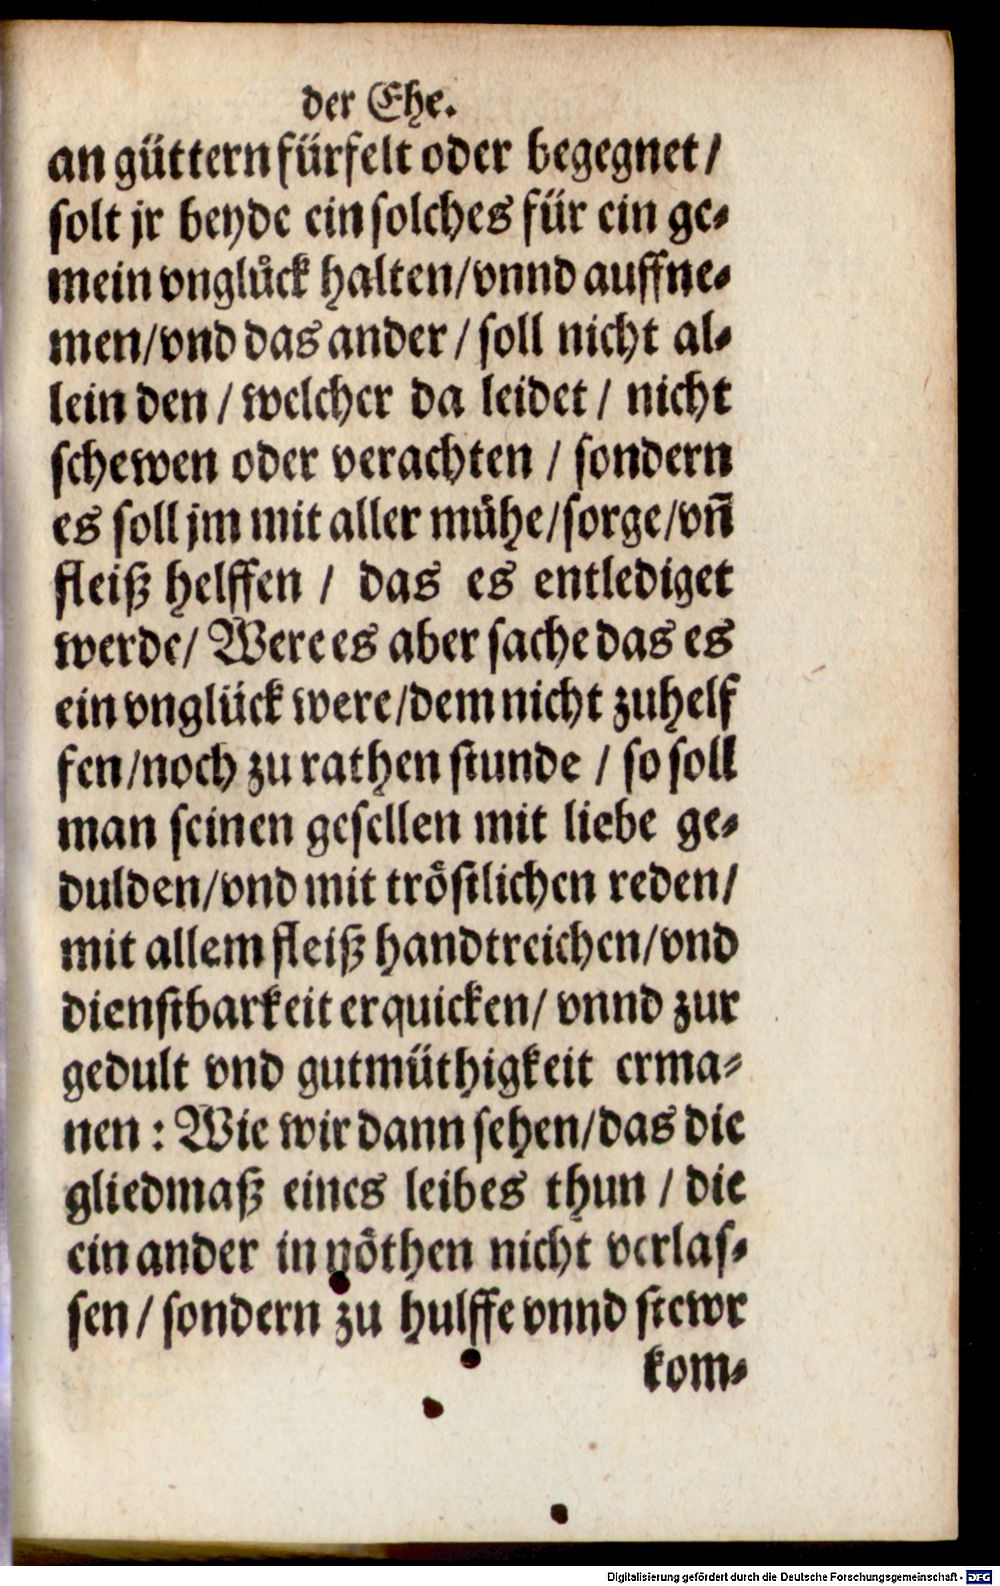 der Ehe.
an güttern fürfelt oder begegnet /
solt jr beyde ein solches für ein ge⸗
mein vnglück halten/vnnd auffne⸗
men/vnd das ander / soll nicht al⸗
lein den / welcher da leidet / nicht
schewen oder verachten / sondern
es soll jm mit aller mühe/sorge/vñ
fleiß helffen / das es entlediget
werde/ Were es aber sache das es
ein vnglück were/dem nicht zuhelf
fen/noch zu rathen stunde / so soll
man seinen gesellen mit liebe ge⸗
dulden/vnd mit tröstlichen reden/
mit allem fleiß handtreichen/vnd
dienstbarkeit erquicken/ vnnd zur
gedult vnd gutmüthigkeit erma⸗
nen : Wie wir dann sehen/das die
gliedmaß eines leibes thun / die
ein ander in nöthen nicht verlas⸗
sen / sondern zu hulffe vnnd stewr
kom⸗
Digitalisierung gefördert durch die Deutsche Forschungsgemeinschaft - DFG